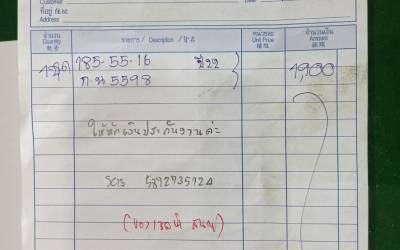 Customer
ที่อยู่
Address
จำนวน
Quantity
รายการ / Description
หน่วยละ
Unit Price
จำนวนเงิน
Amount
1 ชุด 185-55-16 ปี 22 1,900
5598
ให้หักเงินประกันงานค่ะ
SCB 5892735724